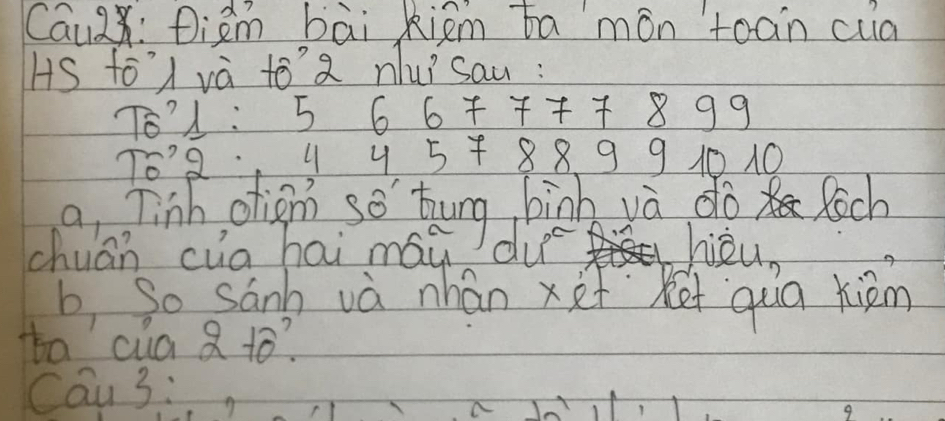 Câu 2: Điểm bài kiểm tra môn toán của
HS tổ 1 và tổ 2 như sau:
Tổ 1: 5 6 6 7 7 7 7 8 9 9
Tổ 2: 4 4 5 7 8 8 9 9 10 10
a, Tính điểm số trung bình và độ lệch
chuẩn của hai mẫu dữ hiệu,
b, So sánh và nhận xét kết quả kiểm
tra của 2 tổ.
Câu 3: